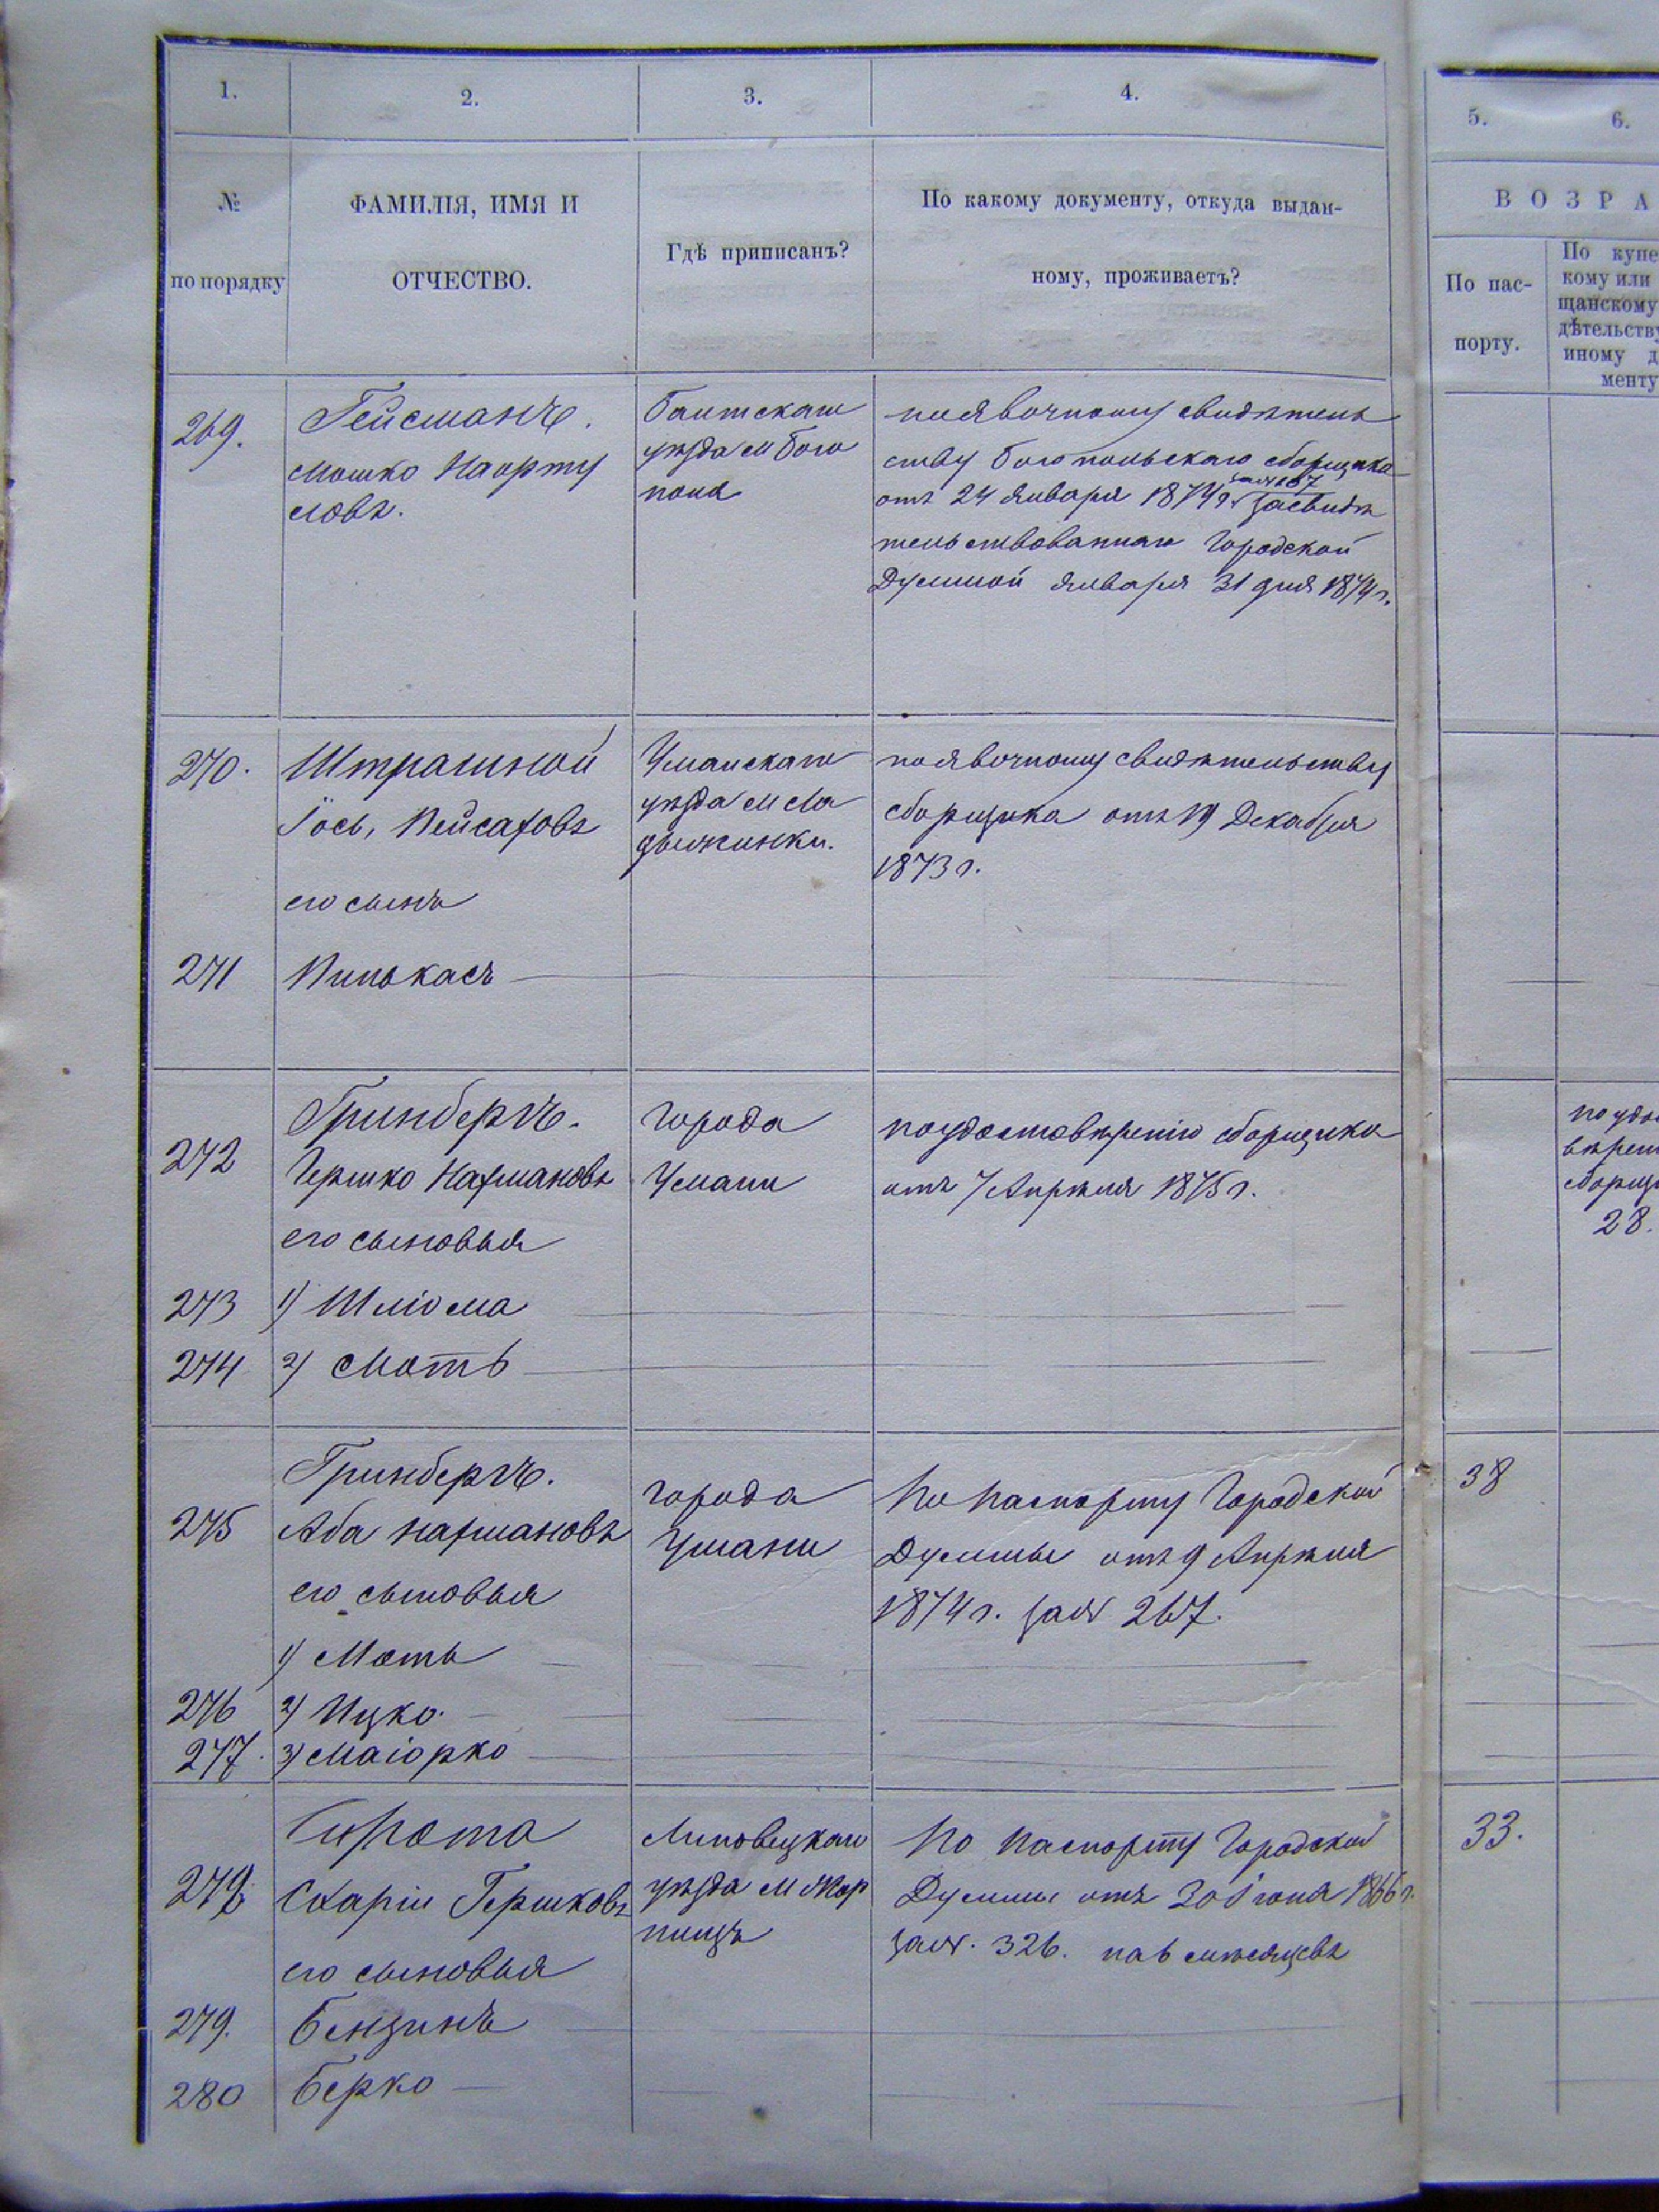 1.
2.
3.
4.
5.
6.
№
по порядку
ФАМИЛІЯ, ИМЯ И
ОТЧЕСТВО.
Гдѣ приписанъ?
По какому документу, откуда выдан-
ному, проживаетъ?
ВОЗРА
По пас-
порту.
По купе
кому или
щанскому
дѣтельству
иному д
менту
269.
Гейсманъ.
Мошко
ловъ.
Балтскаго
уѣзда м Бого
поля
по явочному свидѣтель
ству Богопольскаго сборщика
отъ 24 Января 1874 г. засвидѣ
тельствованном Городской
Думмой Января 31 дня 1874 г.
270.
Штрашной
Іось, Пейсаховъ
его сынъ
Уманскаго
уѣзда м Ла
дыжинки.
по явочному свидѣтельству
сборщика отъ 19 Декабря
1873 г.
271
Пинькасъ
272
Гринбергъ.
Гершко Нахмановъ
его сыновья
Города
Умани
по удостовѣренію сборщика
отъ 7 Апрѣля 1875 г.
по удос
вѣрен
сборщ
28.
273
1) Шліома
274
2) Моть
275
Гринбергъ.
Аба Нахмановъ
его сыновья
1) Моть
города
Умани
По паспорту Городской
Думмы отъ 9 Апрѣля
1874 г. за № 267.
38
276
2) Ицко.
277.
3) Маіорко
278
Сирота
Схарія Гершковъ
его сыновья
Липовецкаго
уѣзда м Жор
нищъ
По паспорту Городской
Думмы отъ 30 Іюня 1866 г.
за №. 326. на 6 мѣсяцевъ
33.
279.
Бензинъ
280
Берко